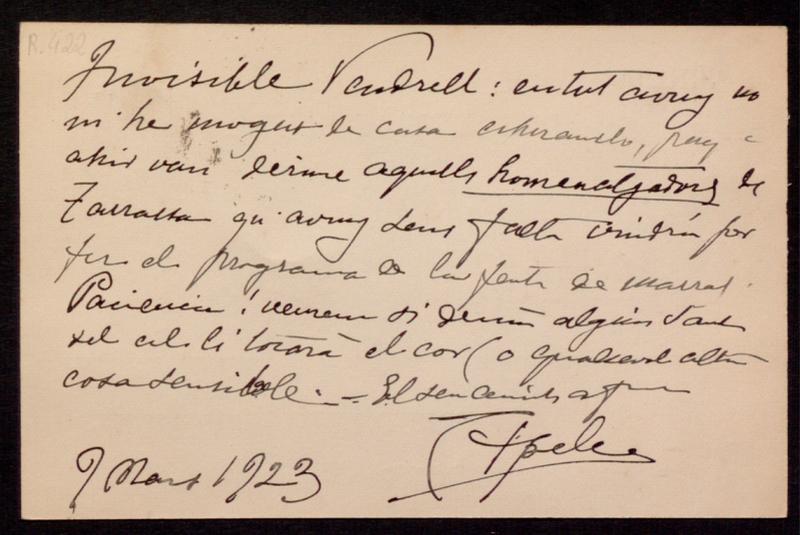 R.422
Invisible Vendrell: en tut avuy no
m'he mogut de casa esperantlo, puig
ahir van dirme aquells homenatjadors de
Tarrassa qu'avuy sens falta vindrían per
fer el programa de la festa de Marsal.
Paciencia! veurem si demá algún Sant
del cel li tocará el cor (o qualsevol altra
cosa sensible. = El seu amich afm
Apeles
9 Mars 1923